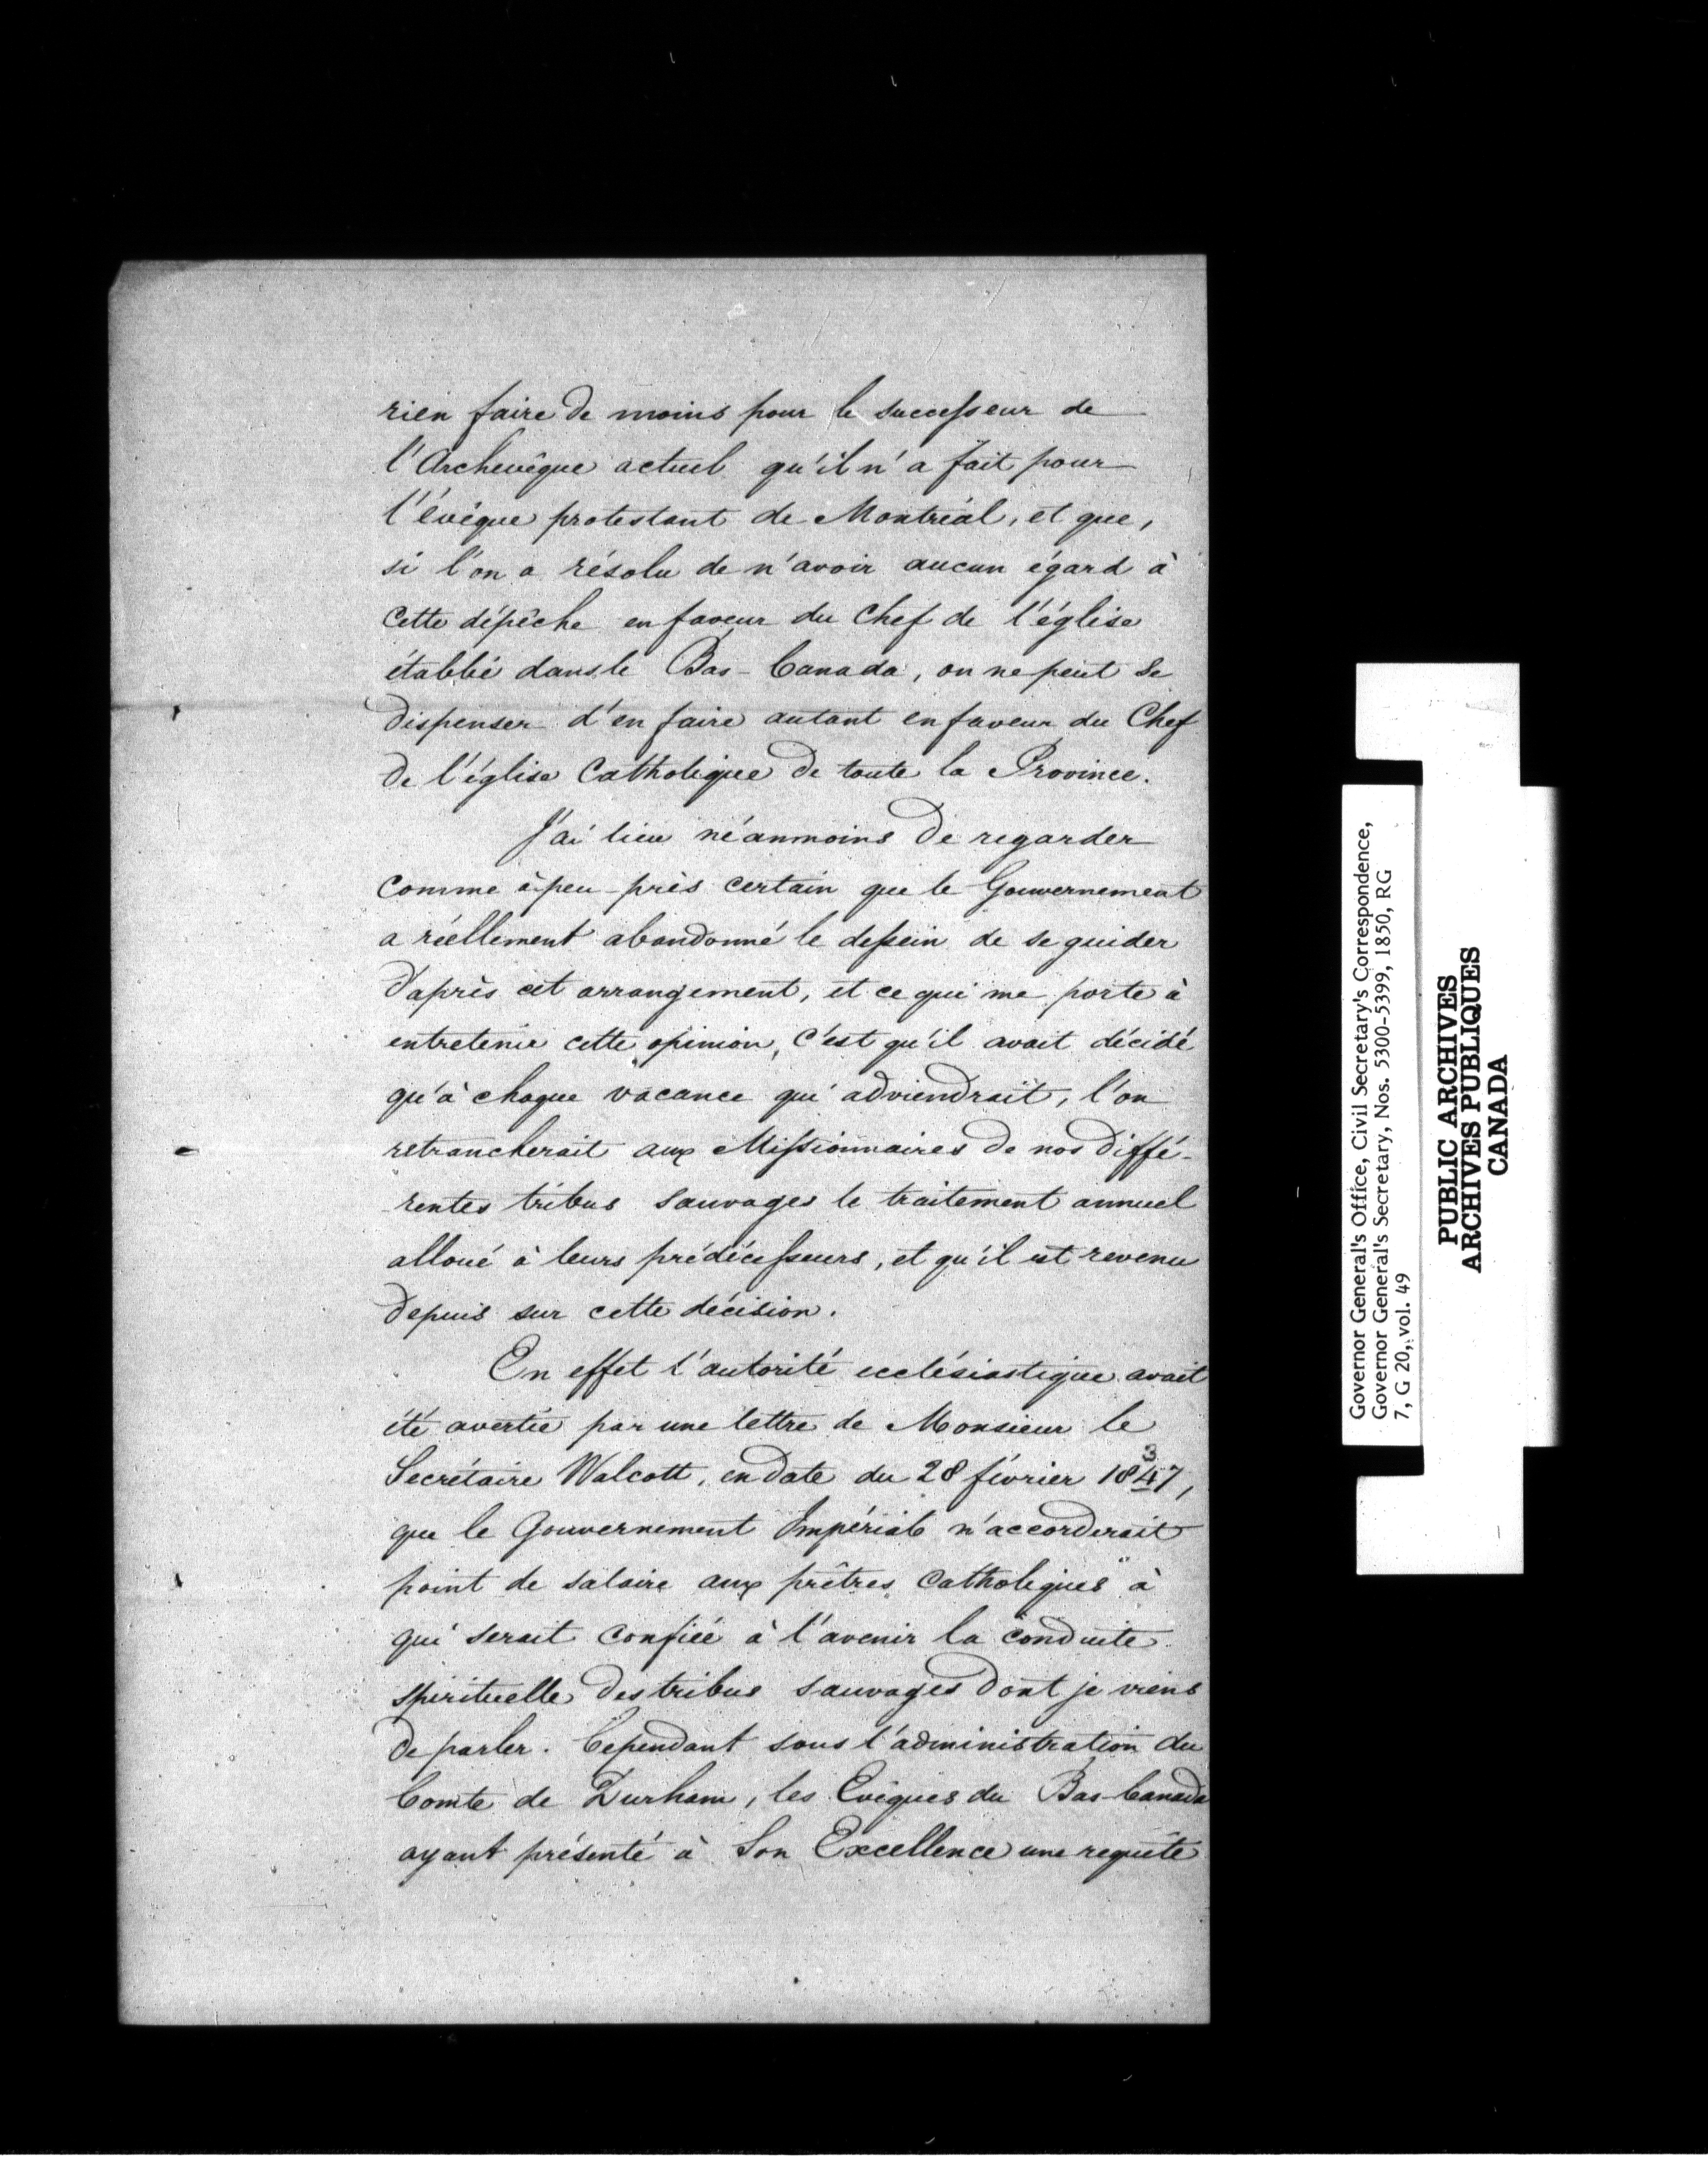 rien faire de moins pour le successeur de
l'Archevêque actuel qu'il n'a fait pour
l'évêque protestant de Montréal, et que,
si l'on a résolu de n'avoir aucun égard à
cette dépêche en faveur du Chef de l'église
établie dans le Bas-Canada, on ne peut se
dispenser d'en faire autant en faveur du Chef
de l'église Catholique de toute la Province.
J'ai lieu néanmoins de regarder
comme à-peu-près certain que le Gouvernement
a réellement abandonné le dessein de se guider
d'après cet arrangement, et ce qui me porte à
entretenir cette opinion, c'est qu'il avait décidé
qu'à chaque vacance qui adviendrait, l'on
retrancherait aux Missionnaires de nos diffé-
rentes tribus sauvages le traitement annuel
alloué à leurs prédécesseurs, et qu'il est revenu
depuis sur cette décision.
En effet l'autorité ecclésiastique avait
été avertie par une lettre de Monsieur le
Secrétaire Walcott, en date du 28 février 1847,
3
que le Gouvernement Impérial n'accorderait
point de salaire aux prêtres Catholiques à
qui serait confiée à l'avenir la conduite
spirituelle des tribus sauvages dont je viens
de parler. Cependant sous l'administration du
Comte de Durham, les Evêques du Bas-Canada
ayant présenté à Son Excellence une requête
Governor General's Office, Civil Secretary's Correspondence,
Governor General's Secretary, Nos. 5300-5399, 1850, RG
7, G 20, vol. 49
PUBLIC ARCHIVES
ARCHIVES PUBLIQUES
CANADA